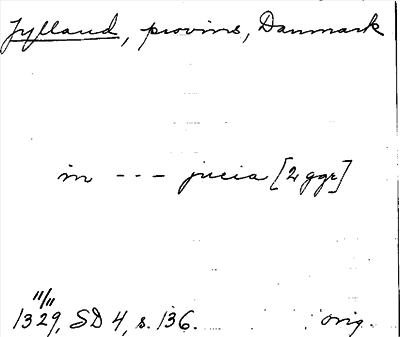 Jylland, provins, Danmark
in --- jucia [2 ggr]
11/11
1329, SD 4, s. 136.
orig.